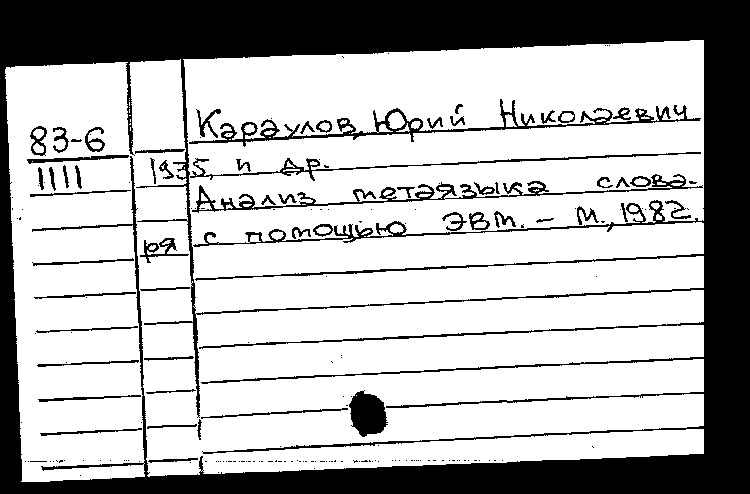 83-6
1111
Караулов, Юрий Николаевич
1935, и др.
Анализ метаязыка слова-
ря с помощью ЭВМ. – М., 1982.